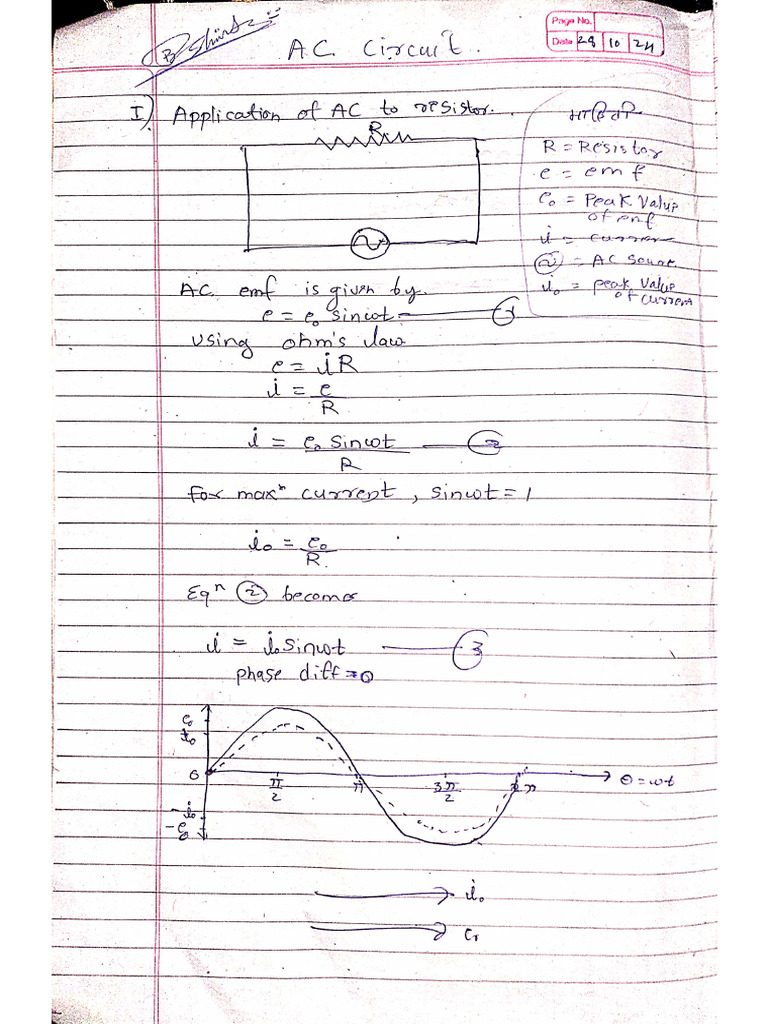 B Shinde
A.C. Circuit.
Page No.
Date 28 10 24
I) Application of AC to resistor.
R
माहिती
R = Resistor
e = emf
e₀ = Peak Value
of emf
i = current
~ = AC Source
i₀ = peak Value
of current
AC emf is given by.
e = e₀ sinωt — 1
using ohm's law
e = iR
i = e/R
i = e₀ sinωt/R — 2
For maxᵐ current, sinωt = 1
i₀ = e₀/R.
Eqⁿ 2 becomes
i = i₀ sinωt — 3
phase diff = 0
e₀
i₀
0
π/2
π
3π/2
2π
θ = ωt
-i₀
-e₀
i₀